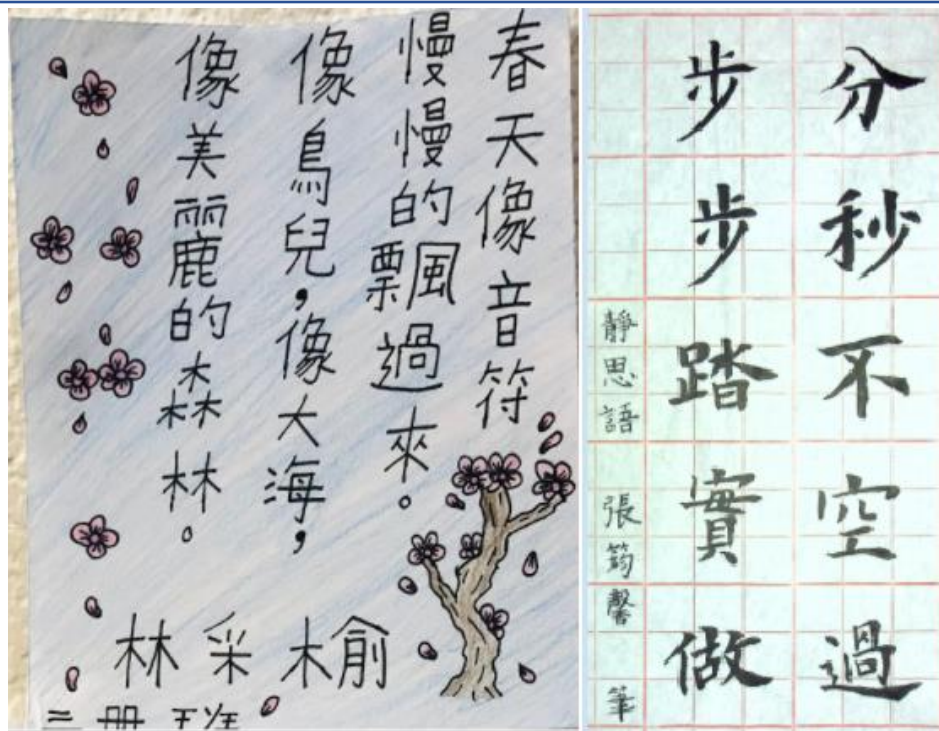 春天像音符
慢慢的飄風過來。
像鳥兒,像大海,
像美麗的森林。
林采榆
二冊
分秒不空過
步步踏實做
靜思語 張筠馨 筆